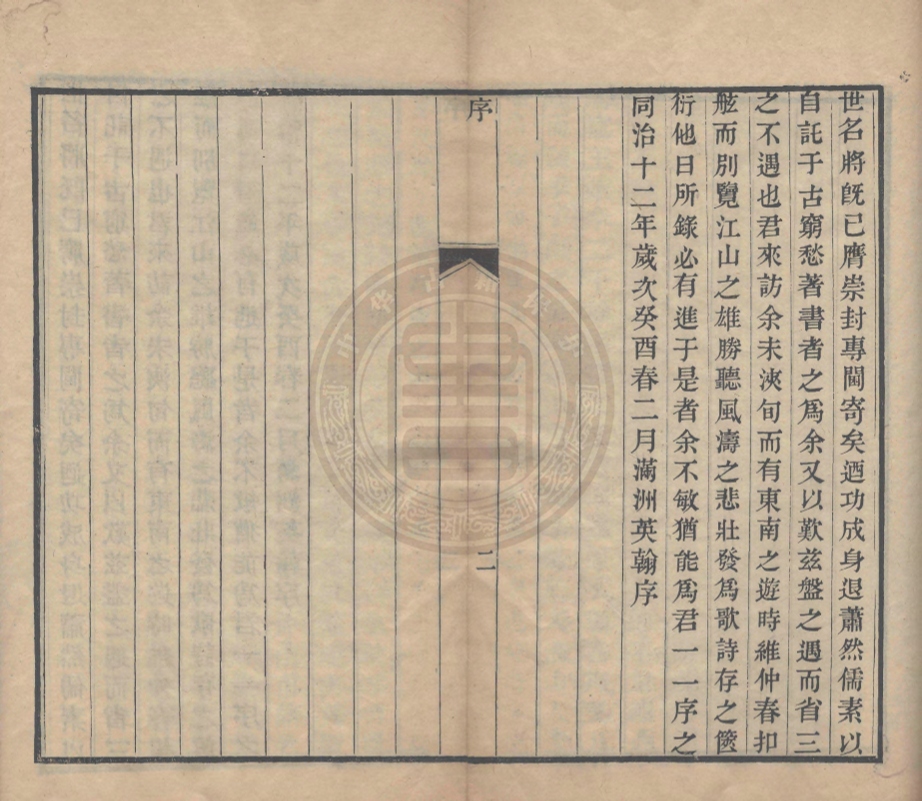 世名將旣已膺崇封專閫寄矣迺功成身退蕭然儒素以
自託于古窮愁著書者之爲余又以歎茲盤之遇而省三
之不遇也君來訪余未浹旬而有東南之遊時維仲春扣
舷而別覽江山之雄勝聽風濤之悲壯發爲歌詩存之篋
衍他日所錄必有進于是者余不敏猶能爲君一一序之
同治十二年歲次癸酉春二月滿洲英翰序
序
二